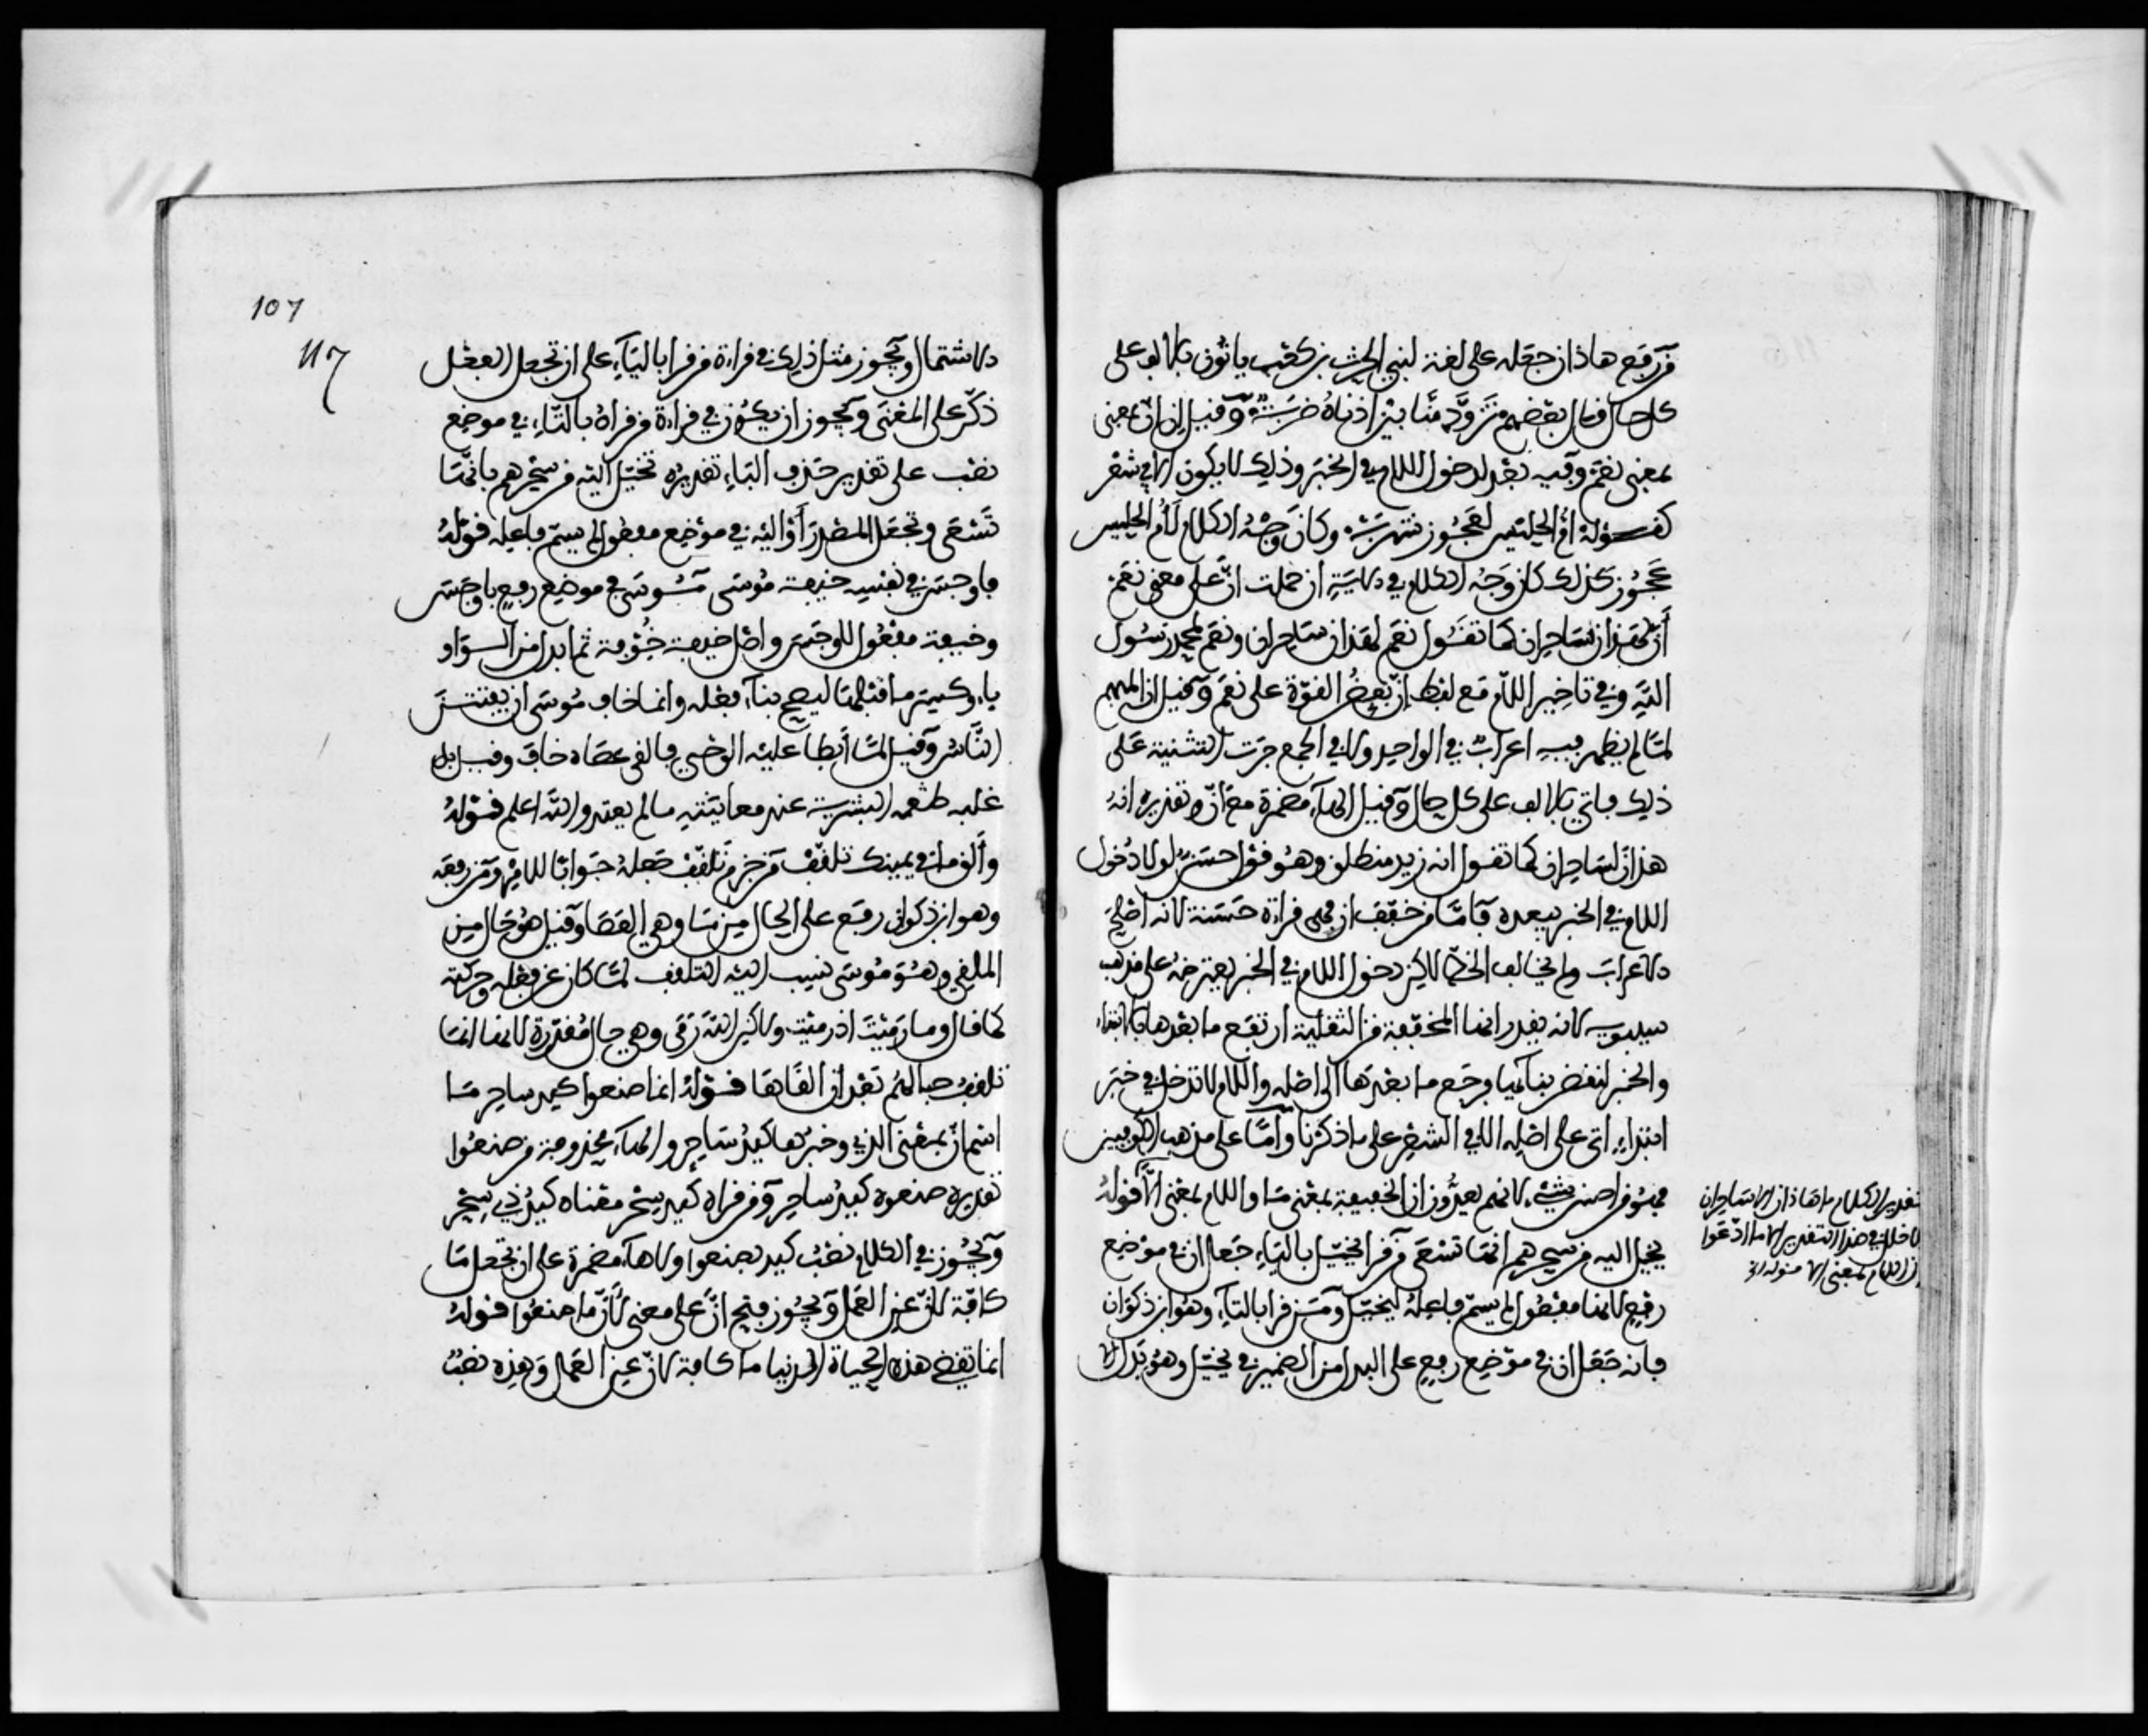 من رفع هاذان جعله على لغة لبني الحرث بن كعب ياتون بالالف على
كل حال قال بعضهم تزود منا بين اذناه ضربة وقيل ان ان بمعنى
بمعنى نعم وفيه بعد لدخول اللام في الخبر وذلك لا يكون الا في شعر
كقوله ام الحليس لعجوز شهربه وكان وجه الكلام لام الحليس
عجوز كذلك كان وجه الكلام في الاية ان حملت ان على معنى نعم
ان لهذان ساحران كما تقول نعم لهذان ساحران ونعم لمحمد رسول
الله وفي تاخير اللام مع لفظ ان بعض القوة على نعم وقيل ان المبهم
لما لم يظهر فيه اعراب في الواحد ولا في الجمع جرت التثنية على
ذلك فاتى بالالف على كل حال وقيل الهاء مضمرة مع ان وتقديره انه
هذان لساحران كما تقول انه زيد منطلق وهو قول حسن لولا دخول
اللام في الخبر يبعده فاما من خفف ان فهي قراءة حسنة لانه اصلح
الاعراب ولم يخالف الخط لاكن دخول اللام في الخبر يعترضه على مذهب
سيبويه لانه يقدر انها المخففة من الثقيلة ارتفع ما بعدها بالابتداء
والخبر لنقض بنائها فرجع ما بعدها الى اصله واللام لا تدخل في خبر
ابتداء اتى على اصله الا في الشعر على ما ذكرنا واما على مذهب الكوفيين
فهو قراصن شيء لانهم يعدون ان الخفيفة بمعنى ما واللام بمعنى الا قوله
يخيل اليه من سحرهم انها تسعى من قرا يخيل بالياء جعل ان في موضع
رفع لانها مفعول لم يسم فاعله ليخيل ومن قرا بالتاء وهو ابن ذكوان
فانه جعل ان في موضع رفع على البدل من الضمير في تخيل وهو بدل الا
تقدير الكلام ما هاذان الا ساحران
لا خلل في هذا التقدير الا ما ادعوا
ان اللام بمعنى الا
107
117
الاشتمال ويجوز مثل ذلك في قراءة من قرا بالياء على ان تجعل الفعل
ذكر على المعنى ويجوز ان يكون في قراءة من قراه بالتاء في موضع
نصب على تقدير حذف الباء تقديره تخيل اليه من سحرهم بانها
تسعى وتجعل المصدر او اليه في موضع مفعول لم يسم فاعله قوله
فاوجس في نفسه خيفة موسى موسى في موضع رفع باوجس
وخيفة مفعول لاوجس واصل خيفة خوفة ثم ابدل من الواو
ياء وكسر ما قبلها ليصح بناء فعله وانما خاف موسى ان يفتتن
الناس وقيل لما ابطا عليه الوحي فالقى عصاه خاف وقيل بل
غلبه طبعه البشرية عند معاينته ما لم يعتد والله اعلم قوله
والق ما في يمينك تلقف من جزم تلقف جعله جوابا للامر ومن رفعه
وهو ابن ذكوان رفع على الحال من ما وهي العصا وقيل هو حال من
الملقي وهو موسى نسب اليه التلقف لما كان عن فعله وحركته
كما قال وما رميت اذ رميت ولاكن الله رمى وهي حال مقدرة لانها انما
تلقفت حبالهم بعد ان القاها قوله انما صنعوا كيد ساحر ما
اسم ان بمعنى الذي وخبرها كيد ساحر والهاء محذوفة من صنعوا
تقديره صنعوه كيد ساحر ومن قراه كيد سحر معناه كيد ذي سحر
ويجوز في الكلام نصب كيد بصنعوا ولا هاء مضمرة على ان تجعل ما
كافة لان عن العمل ويجوز فتح ان على معنى لان ما صنعوا قوله
انما تقضي هذه الحياة الدنيا ما كافة لان عن العمل وهذه نصب